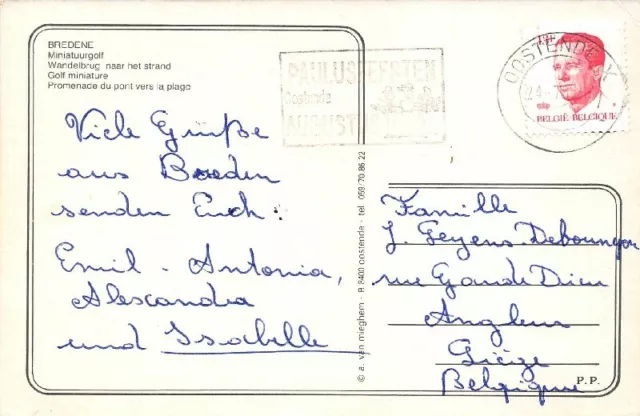 BREDENE
Miniatuurgolf
Wandelbrug naar het strand
Golf miniature
Promenade du pont vers la plage
Viele Grüße
aus Breeden
senden Euch:
Emil - Antonia,
Alexandra
und Issabelle
© a. van mieghem - B 8400 oostende - tel. 059/70.86.22
PAULUSFEESTEN
Oostende
AUGUST
OOSTENDE
BELGIË-BELGIQUE
Famille
J. Geyens-
rue Dieu
Angleur
Liège
Belgique
P.P.